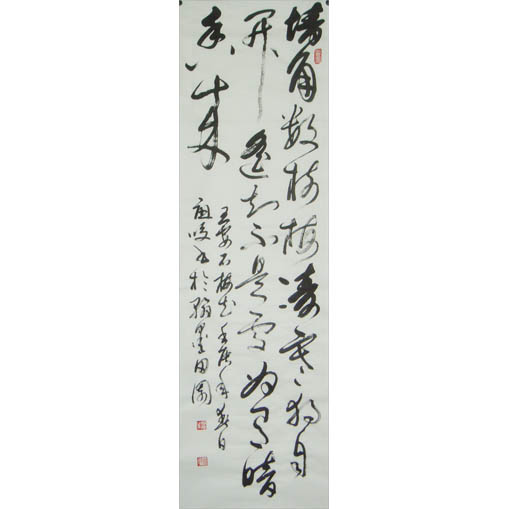 墙角数枝梅凌寒独自
开遥知不是雪为有暗
香来
王安石梅花年春日
书于翰墨田园